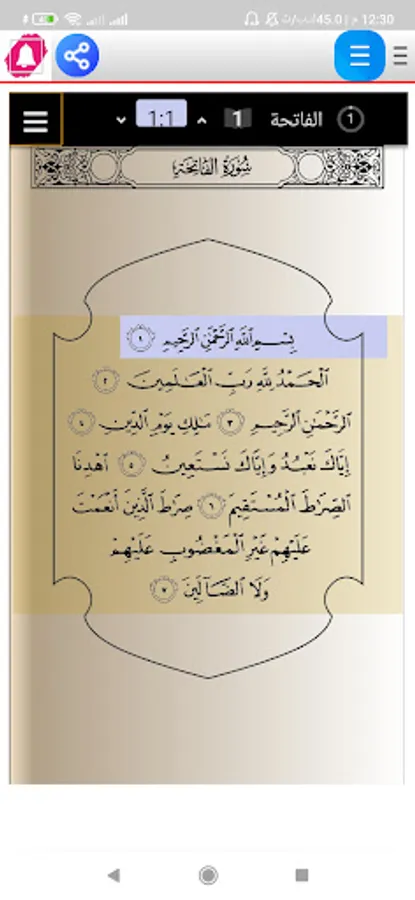 12:30 م | 45.0ك.ب/ث
1 الفاتحة 1 1:1
سُورَةُ الفَاتِحَةِ
بِسْمِ ٱللَّهِ ٱلرَّحْمَٰنِ ٱلرَّحِيمِ ١
ٱلْحَمْدُ لِلَّهِ رَبِّ ٱلْعَٰلَمِينَ ٢
ٱلرَّحْمَٰنِ ٱلرَّحِيمِ ٣ مَٰلِكِ يَوْمِ ٱلدِّينِ ٤
إِيَّاكَ نَعْبُدُ وَإِيَّاكَ نَسْتَعِينُ ٥ ٱهْدِنَا
ٱلصِّرَٰطَ ٱلْمُسْتَقِيمَ ٦ صِرَٰطَ ٱلَّذِينَ أَنْعَمْتَ
عَلَيْهِمْ غَيْرِ ٱلْمَغْضُوبِ عَلَيْهِمْ
وَلَا ٱلضَّآلِّينَ ٧